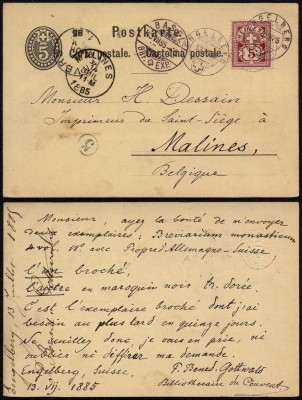 Postkarte.
Carte postale. Cartolina postale.
5
5
MALINES
1885
BASEL
EXP.
ENGELBERG
Monsieur H. Dessain
Imprimeur du Saint-Siège à
Malines,
Belgique
Monsieur, ayez la bonté de m'envoyer
deux exemplaires: Breviarium monasticum
4 vol. avec Propred Allemagne-Suisse,
l'un broché,
l'autre en maroquin noir tr. dorée.
C'est l'exemplaire broché dont j'ai
besoin au plus tard en quinze jours.
Je vous en prie, ni
oublier ni différer ma demande.
Engelberg, Suisse,
13. VII. 1885
P. Bened. Gottwald
Bibliothécaire du Couvent.
Engelberg 13 Juillet 1885